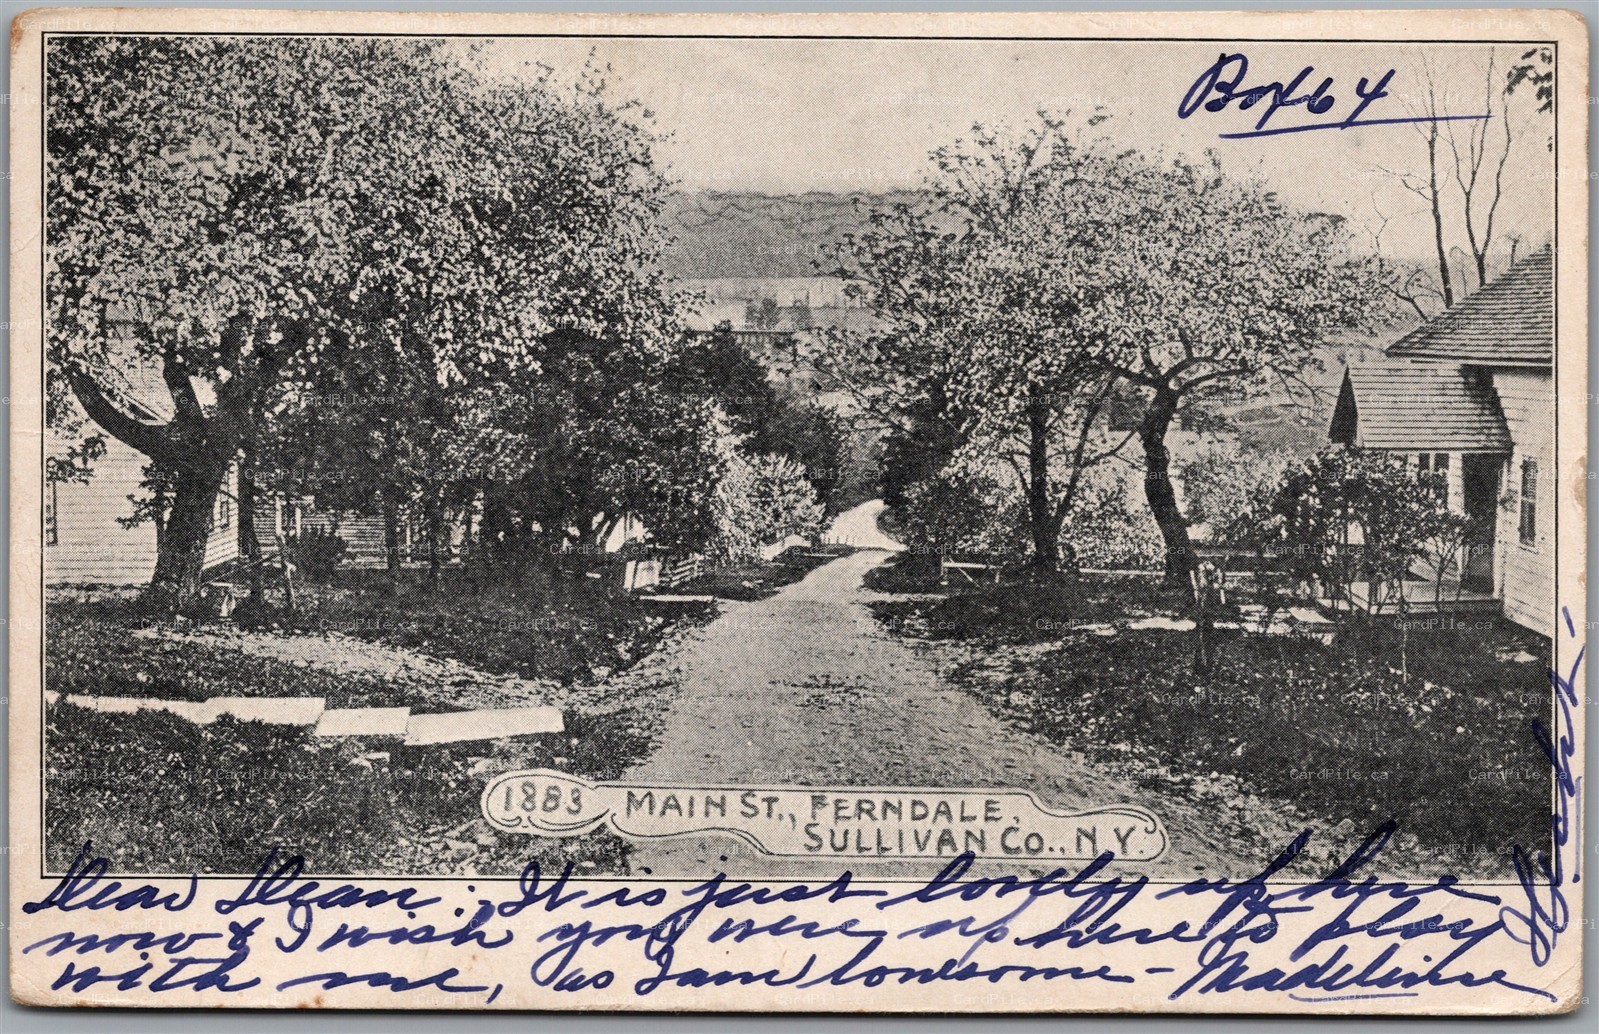 Box 64
1883 MAIN ST., FERNDALE,
SULLIVAN CO., N.Y.
Dear Dean:- It is just lovely up here
now & I wish you were up here to play
with me, as I am lonesome - Madeline
CardPile.ca